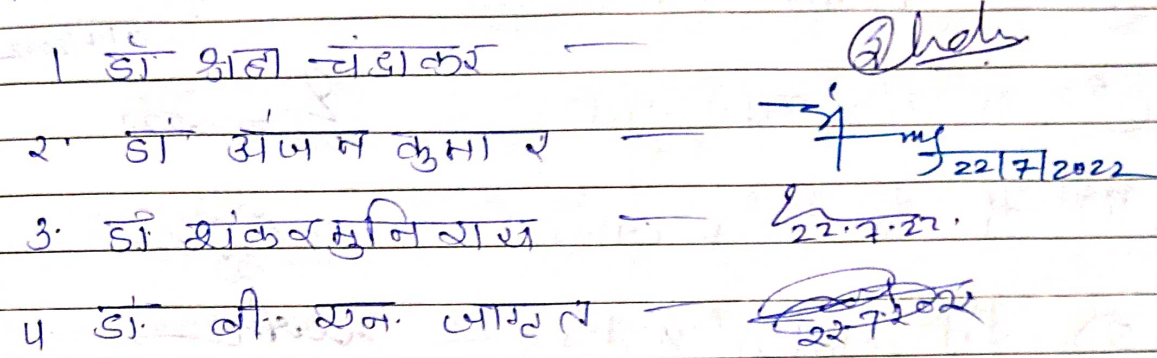 1 डॉ श्रद्धा चंद्राकर —
२. डॉ अंजन कुमार — 22/7/2022
3. डॉ शंकर मुनि राय — 22.7.22.
4 डॉ. बी. एन. जागृत — 22.7.2022